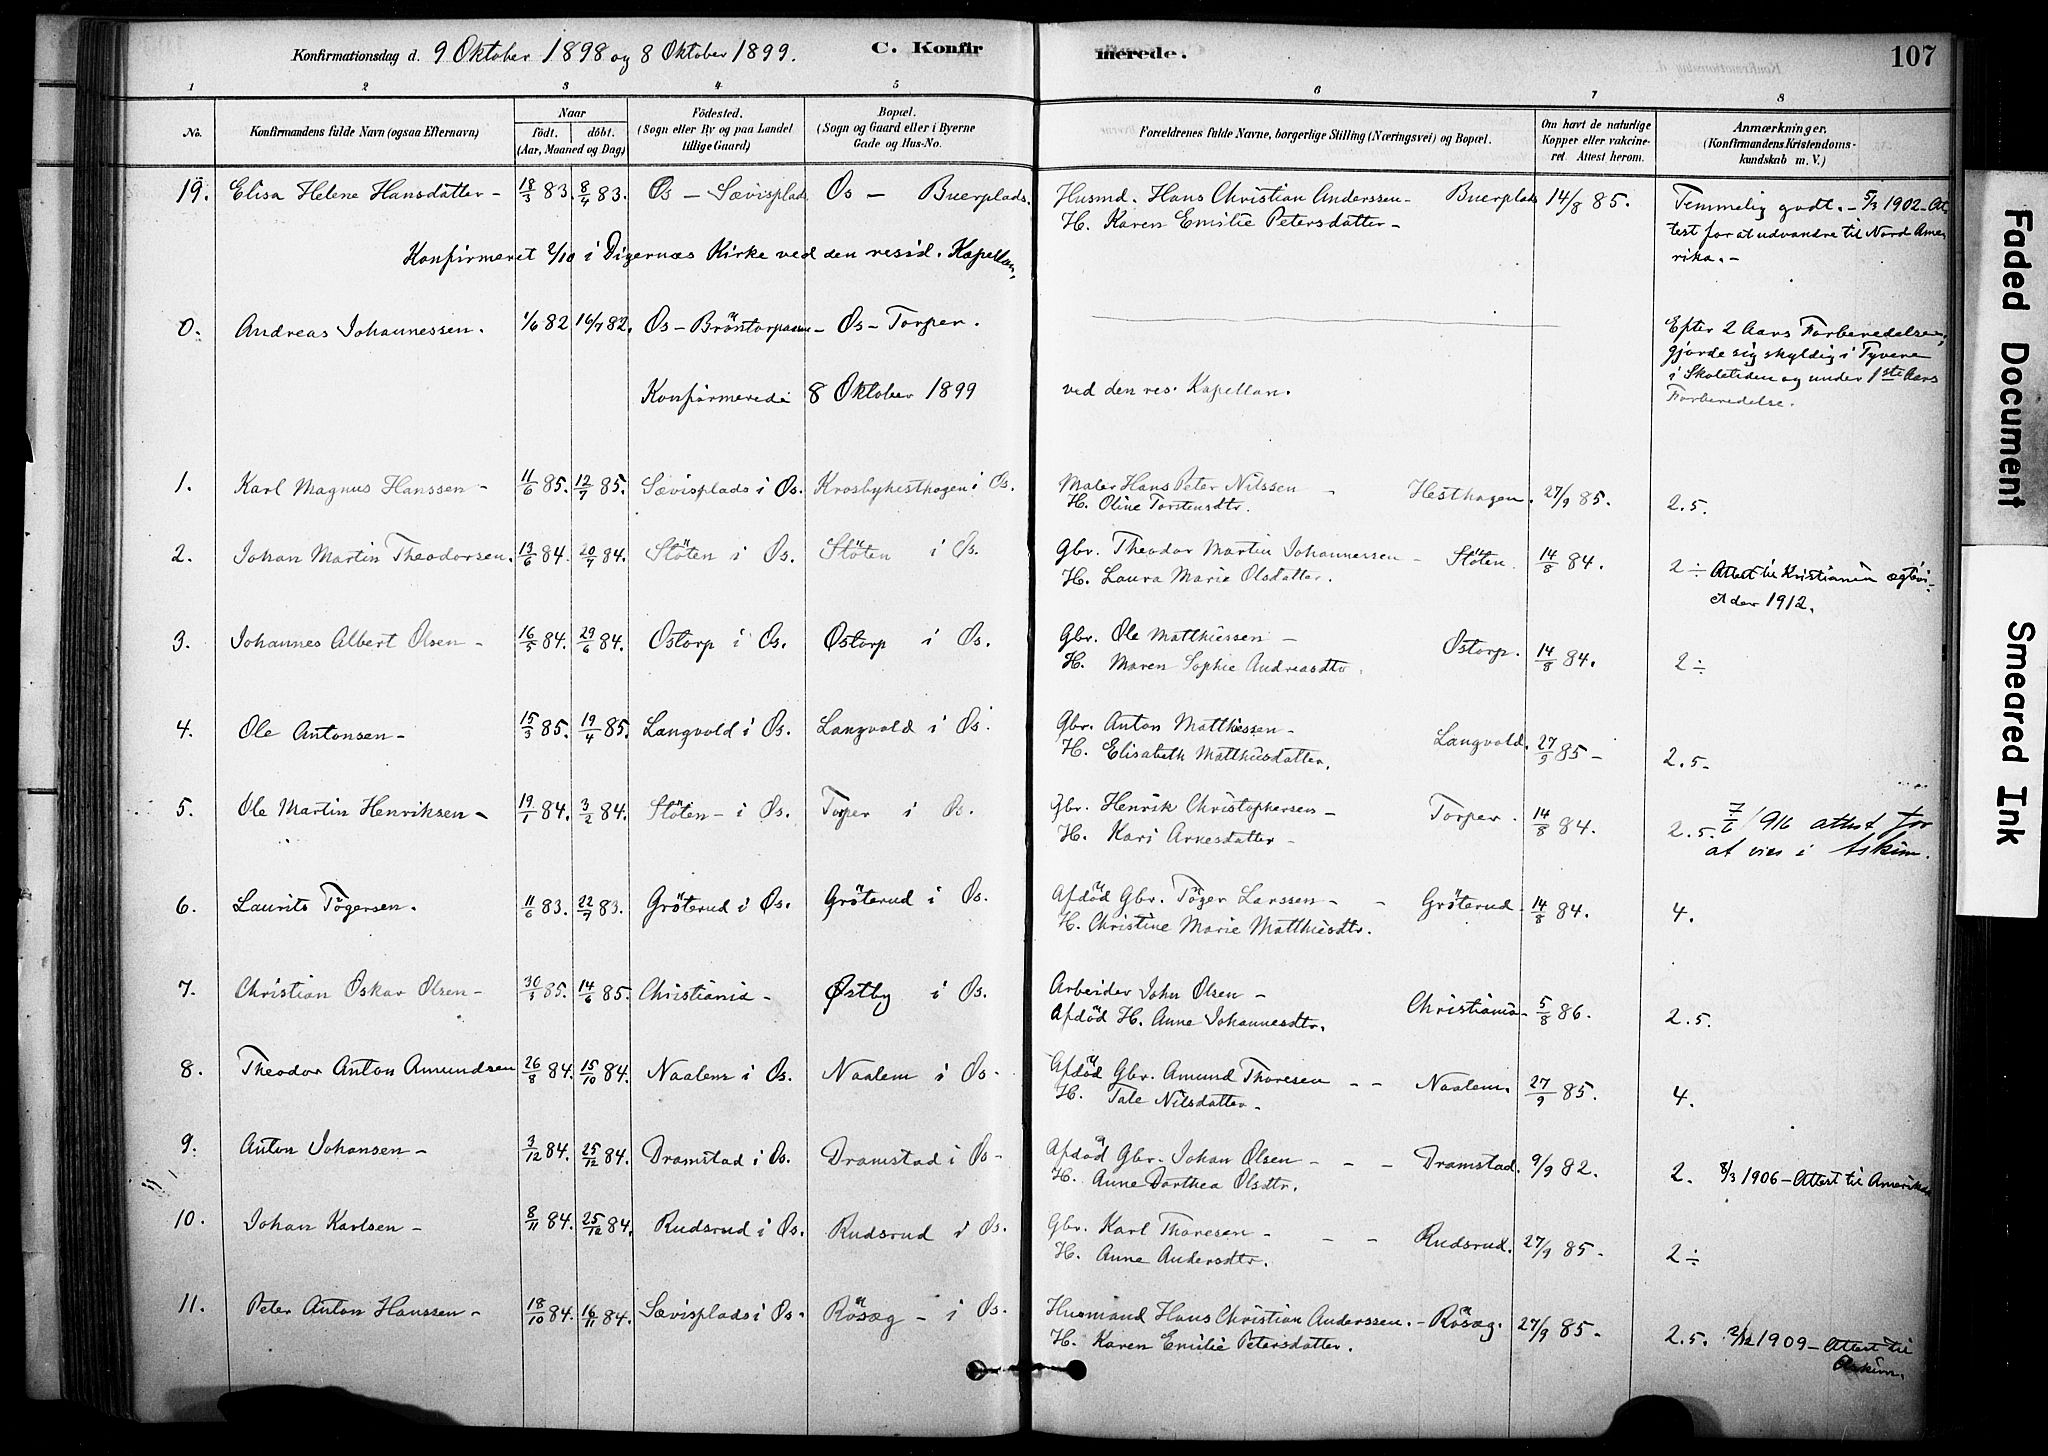 Konfirmationsdag d. 9 Oktober 1898 og 8 Oktober 1899. C. Konfirmerede. 107
1 2 3 4 5 6 7 8
No. Konfirmandens fulde Navn (ogsaa Efternavn) Naar födt. döbt. (Aar, Maaned og Dag) Födested. (Sogn eller By og paa Landet tillige Gaard) Bopæl. (Sogn og Gaard eller i Byerne Gade og Hus-No. Forældrenes fulde Navne, borgerlige Stilling (Næringsvei) og Bopæl. Om havt de naturlige Kopper eller vakcineret. Attest herom. Anmærkninger. (Konfirmandens Kristendomskundskab m. V.)
19. Elisa Helene Hansdatter - 18/3 83. 8/4 83. Os - Sævisplads Øs - Buerplads. Husmd. Hans Christian Anderssen - Buerplads 14/8 85. Temmelig godt. - 5/3 1902 - At
H. Karen Emilie Petersdatter - test for at udvandre til Nord Ame
Konfirmeret 2/10 i Digernæs Kirke ved den resid. Kapellan. rika. -
0. Andreas Johannessen. 1/6 82 16/7 82. Øs - Øs - Torper. Efter 2 Aars Forberedelse,
gjorde sig skyldig i Tyveri
i Skoletiden og under 1ste Aars
Konfirmerede 8 Oktober 1899 ved den res. Kapellan. Forberedelse.
1. Karl Magnus Hanssen - 11/6 85. 12/7 85. Sævisplads i Øs. Krosbyhesthagen i Øs. Maler Hans Peter Nilssen - Hesthagen. 27/9 85. 2.5.
H. Oline Torstensdtr.
2. Johan Martin Theodorsen. 13/6 84. 20/7 84. Stöten i Øs. Stöten i Øs. Gbr. Theodor Martin Johannessen - Stöten. 14/8 84. 2÷ Attest til Kristiania
H. Laura Marie Olsdatter. 1912.
3. Johannes Albert Olsen - 16/5 84. 29/6 84. Østorp i Øs. Østorp i Øs. Gbr. Ole Matthiessen - Østorp. 14/8 84. 2÷
H. Maren Sophie Andreasdtr.
4. Ole Antonsen - 15/3 85. 19/4 85. Langvold i Øs. Langvold i Øs. Gbr. Anton Matthiessen - Langvold. 27/9 85 - 2.5-
H. Elisabeth Matthisdatter.
5. Ole Martin Henriksen - 19/1 84. 3/2 84. Stöten - i Øs. Torper i Øs. Gbr. Henrik Christophersen - Torper. 14/8 84. 2.5. 7/6 1916 attest for
H. Kari Arnesdatter - at vies i Askim.
6. Laurits Tögersen. 11/6 83. 22/7 83. Gröterud i Øs. Gröterud i Øs. Afdöd Gbr. Töger Larssen - - Gröterud. 14/8 84. 4.
H. Christine Marie Matthisdtr.
7. Christian Oskar Olsen - 30/3 85. 14/6 85. Christiania - Østby i Øs. Arbeider John Olsen - Christiania - 5/8 86. 2.5.
Afdöd H. Anne Johannesdtr.
8. Theodor Anton Amundsen 26/8 84. 15/10 84. Naalem i Øs. Naalem i Øs. Afdöd Gbr. Amund Thoresen - - Naalem. 27/9 85. 4.
H. Tale Nilsdatter -
9. Anton Johansen - 3/12 84. 25/12 84. Dramstad i Øs. Dramstad i Øs. Afdöd Gbr. Johan Olsen - - - Dramstad. 9/9 82. 2. 8/3 1906 - Attest til Amerika
H. Anne Dorthea Olsdtr.
10. Johan Karlsen - 8/11 84. 25/12 84. Rudsrud i Øs. Rudsrud i Øs. Gbr. Karl Thoresen - - - Rudsrud. 27/9 85 - 2÷
H. Anne Andersdtr.
11. Peter Anton Hanssen - 18/10 84. 16/11 84. Sævisplads i Øs. Rösæg - i Øs. Husmand Hans Christian Anderssen. - Rösæg. 27/9 85 - 2.5. 2/12 1909 - Attest til
H. Karen Emilie Petersdatter. Askim.
Faded Document
Smeared Ink